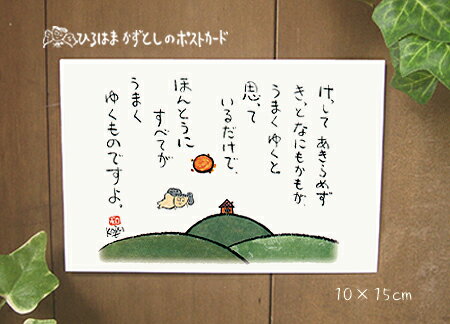 ひろはまかずとしのポストカード
けっして あきらめず
きっとなにもかもが、
うまくゆくと
思って
いるだけで、
ほんとうに
すべてが
うまく
ゆくものですよ。
10×15cm